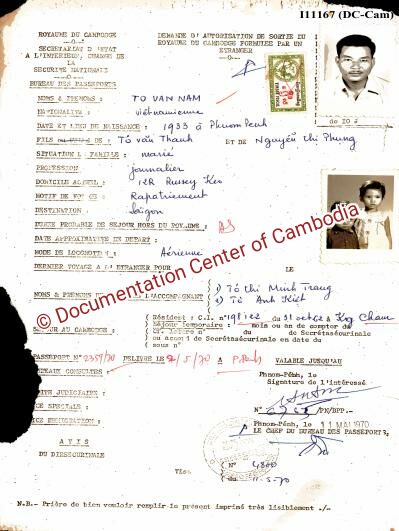 111167 (DC-Cam)
ROYAUME DU CAMBODGE
SECRETARIAT D'ETAT
A L'INTERIEUR, CHARGE DE
LA
SECURITE NATIONALE
BUREAU DES PASSEPORTS
DEMANDE D'AUTORISATION DE SORTIE DU
ROYAUME DU CAMBODGE FORMULEE PAR UN
ETRANGER
NOMS & PRENOMS : TO VAN NAM
NATIONALITE : vietnamienne
DATE ET LIEU DE NAISSANCE : 1933 à Phnom Penh
FILS DE : Tô Văn Thanh ET DE Nguyễn Thi Phung
SITUATION L. FAMILLE : marié
PROFESSION : journalier
DOMICILE ACTUEL : 12R Russey Keo
MOTIF DE VOYAGE : Rapatriement
DESTINATION : Saigon
DUREE PROBABLE DE SEJOUR HORS DU ROYAUME : AS
DATE APPROXIMATIVE DE DEPART :
MODE DE LOCOMOTION : Aérienne
DERNIER VOYAGE A L'ETRANGER POUR LE
NOMS & PRENOMS L'ACCOMPAGNANT 1) Tô Thi Minh Trang
2) Tô Anh Kiêt
© Documentation Center of Cambodia
SEJOUR AU CAMBODGE :
Résident : C.I. n° 198122 du 31 oct 62 à Kg Cham
Séjour temporaire : mois ou an de compter du
de Secrétasécurinale
ou ayant 1 de Secrétasécurinale en date du
sous n°
PASSEPORT N° 2359/70 DELIVRE LE 7/5/70 A P.Penh VALABLE JUSQU'AU
Phnom-Pénh, le
Signature de l'intéressé
N° /PN/BPP.-
Phnom-Pénh, le 11 MAI 1970
LE CHEF DU BUREAU DES PASSEPORTS,
A V I S
DU DIRSECURINALE
Visa
(N° 4800
11-5-70
N.B.- Prière de bien vouloir remplir le présent imprimé très lisiblement ./-